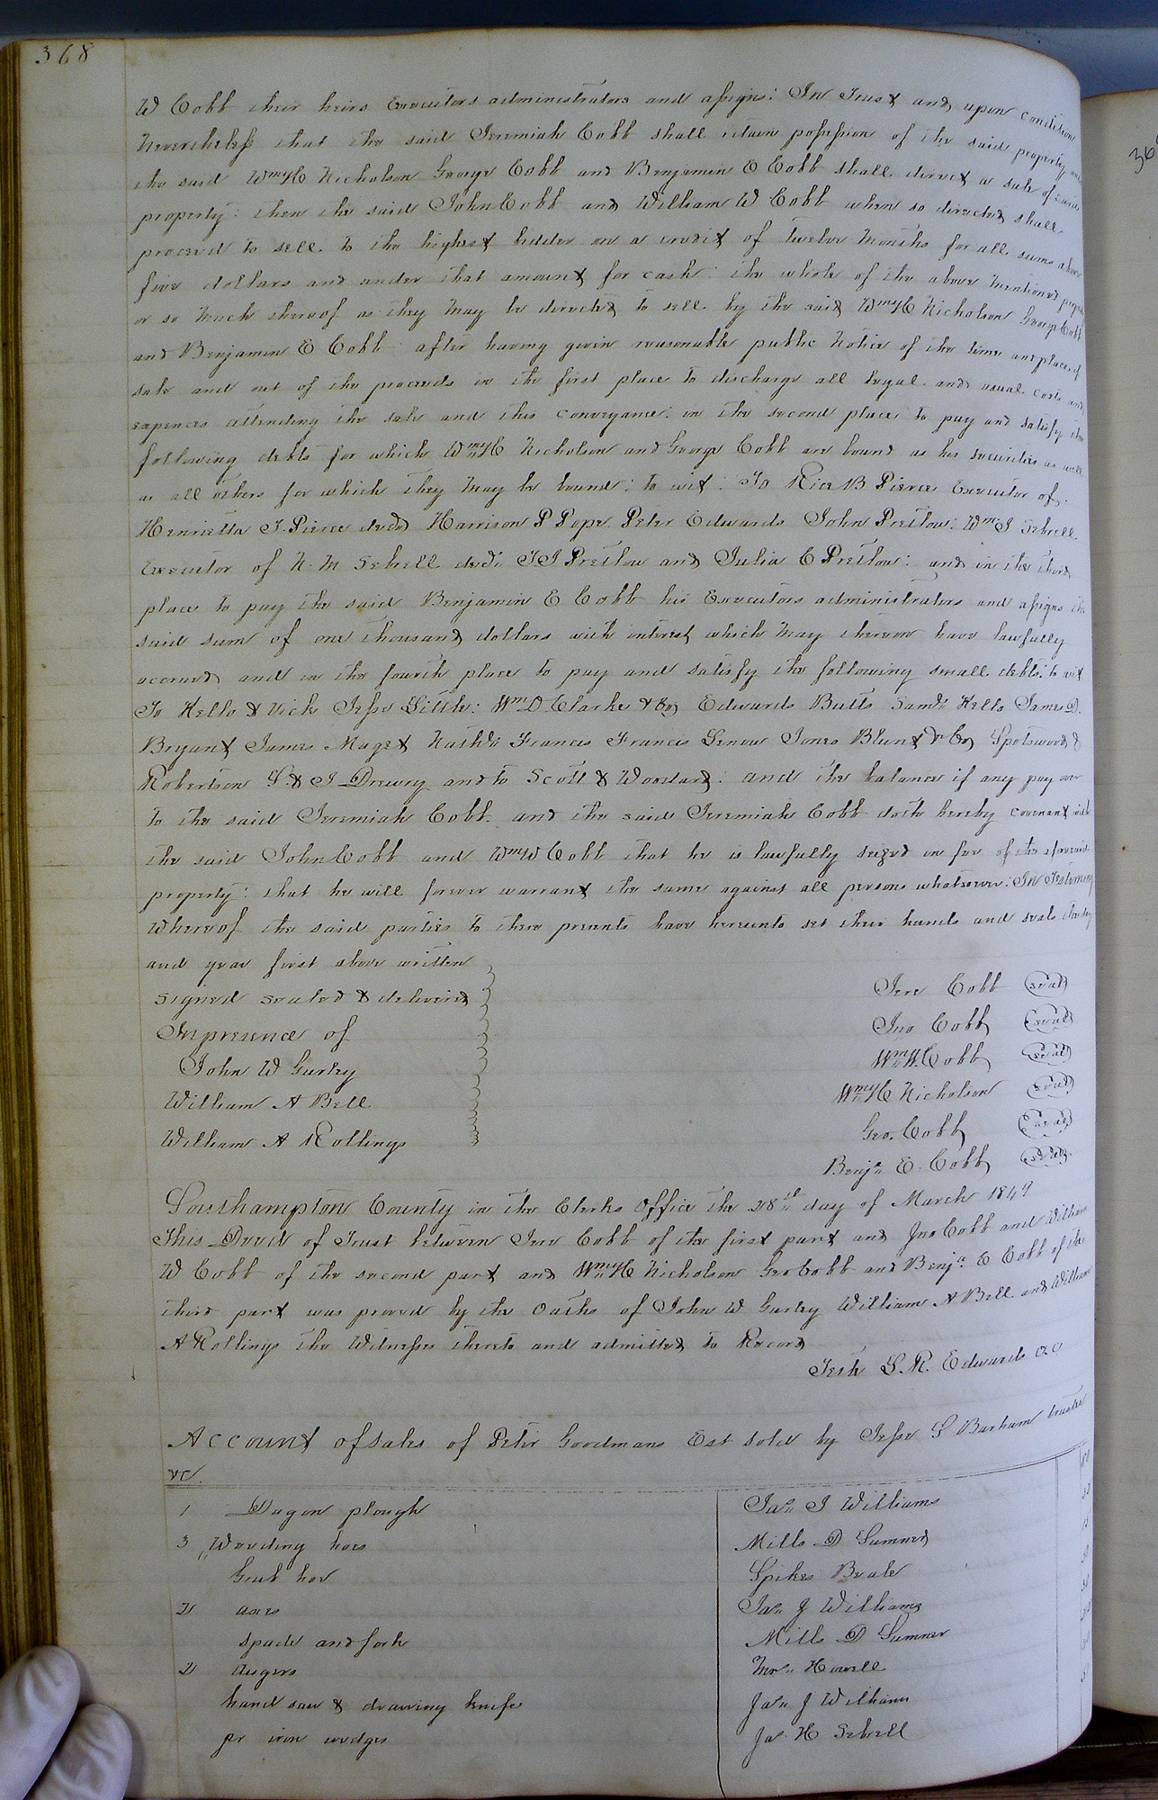 368
W Cobb their heirs Executors administrators and assigns: In Trust and upon condition
Nevertheless that the said Jeremiah Cobb shall retain possession of the said property
the said Wm H C Nicholson George Cobb and Benjamin E Cobb shall direct a sale of said
property: then the said John Cobb and William W Cobb when so directed shall
proceed to sell to the highest bidder on a credit of twelve months for all sums above
five dollars and under that amount for cash: the whole of the above mentioned property
or so much thereof as they may be directed to sell by the said Wm H C Nicholson George Cobb
and Benjamin E Cobb after having given reasonable public notice of the time and place of
sale and out of the proceeds in the first place to discharge all legal and usual costs and
expences attending the sale and this conveyance: in the second place to pay and satisfy the
following debts for which Wm H C Nicholson and George Cobb are bound as his securities as well
as all others for which they may be bound: to wit: To Rice B Pierce Executor of
Henrietta T. Pierce decd Harrison P Pope Peter Edwards John Pretlow: Wm J Sebrell
Executor of N. M Sebrell decd: T J Pretlow and Julia C Pretlow: and in the third
place to pay the said Benjamin E Cobb his Executors administrators and assigns the
said sum of one thousand dollars with interest which may thereon have lawfully
accrued and in the fourth place to pay and satisfy the following small debts: to wit
To Kello & Vick Jesse Little: Wm D Clarke & Co Edwards Butts Saml Kello James D.
Bryant James Maget Nathl Francis Francis Lenow Jones Blunt & Co Spotswood &
Robertson S. & J Drewry and to Scott & Woodard: and the balance if any pay over
to the said Jeremiah Cobb. and the said Jeremiah Cobb doth hereby covenant with
the said John Cobb and Wm W Cobb that he is lawfully seized in fee of the aforesaid
property: that he will forever warrant the same against all persons whatsoever: In Testimony
Whereof the said parties to these presents have hereunto set their hands and seals the day
and year first above written
Signed sealed & delivered
In presence of
John W Gurley
William A Bell
William A Rollings
Jere Cobb seal
Jno Cobb seal
Wm W. Cobb seal
Wm H C Nicholson seal
Geo. Cobb seal
Benjn E. Cobb seal
Southampton County in the Clerks Office the 28th day of March 1849
This Deed of Trust between Jere Cobb of the first part and Jno Cobb and William
W Cobb of the second part and Wm H C Nicholson Geo Cobb and Benjn E Cobb of the
third part was proved by the oaths of John W Gurley William A Bell and William
A Rollings the Witnesses thereto and admitted to Record
Teste L. R. Edwards CC
Account of sales of Peter Goodmans Est sold by Jesse S Barham trustee
&C.
1 Dagon plough Jas J Williams
3 Weeding hoes Mills D Sumner
Grub hoe Spikes Beale
2 axes Jas J Williams
spade and fork Mills D Sumner
2 augers Howell
hand saw & drawing knife Jas J Williams
pr iron wedges Jas H Sebrell